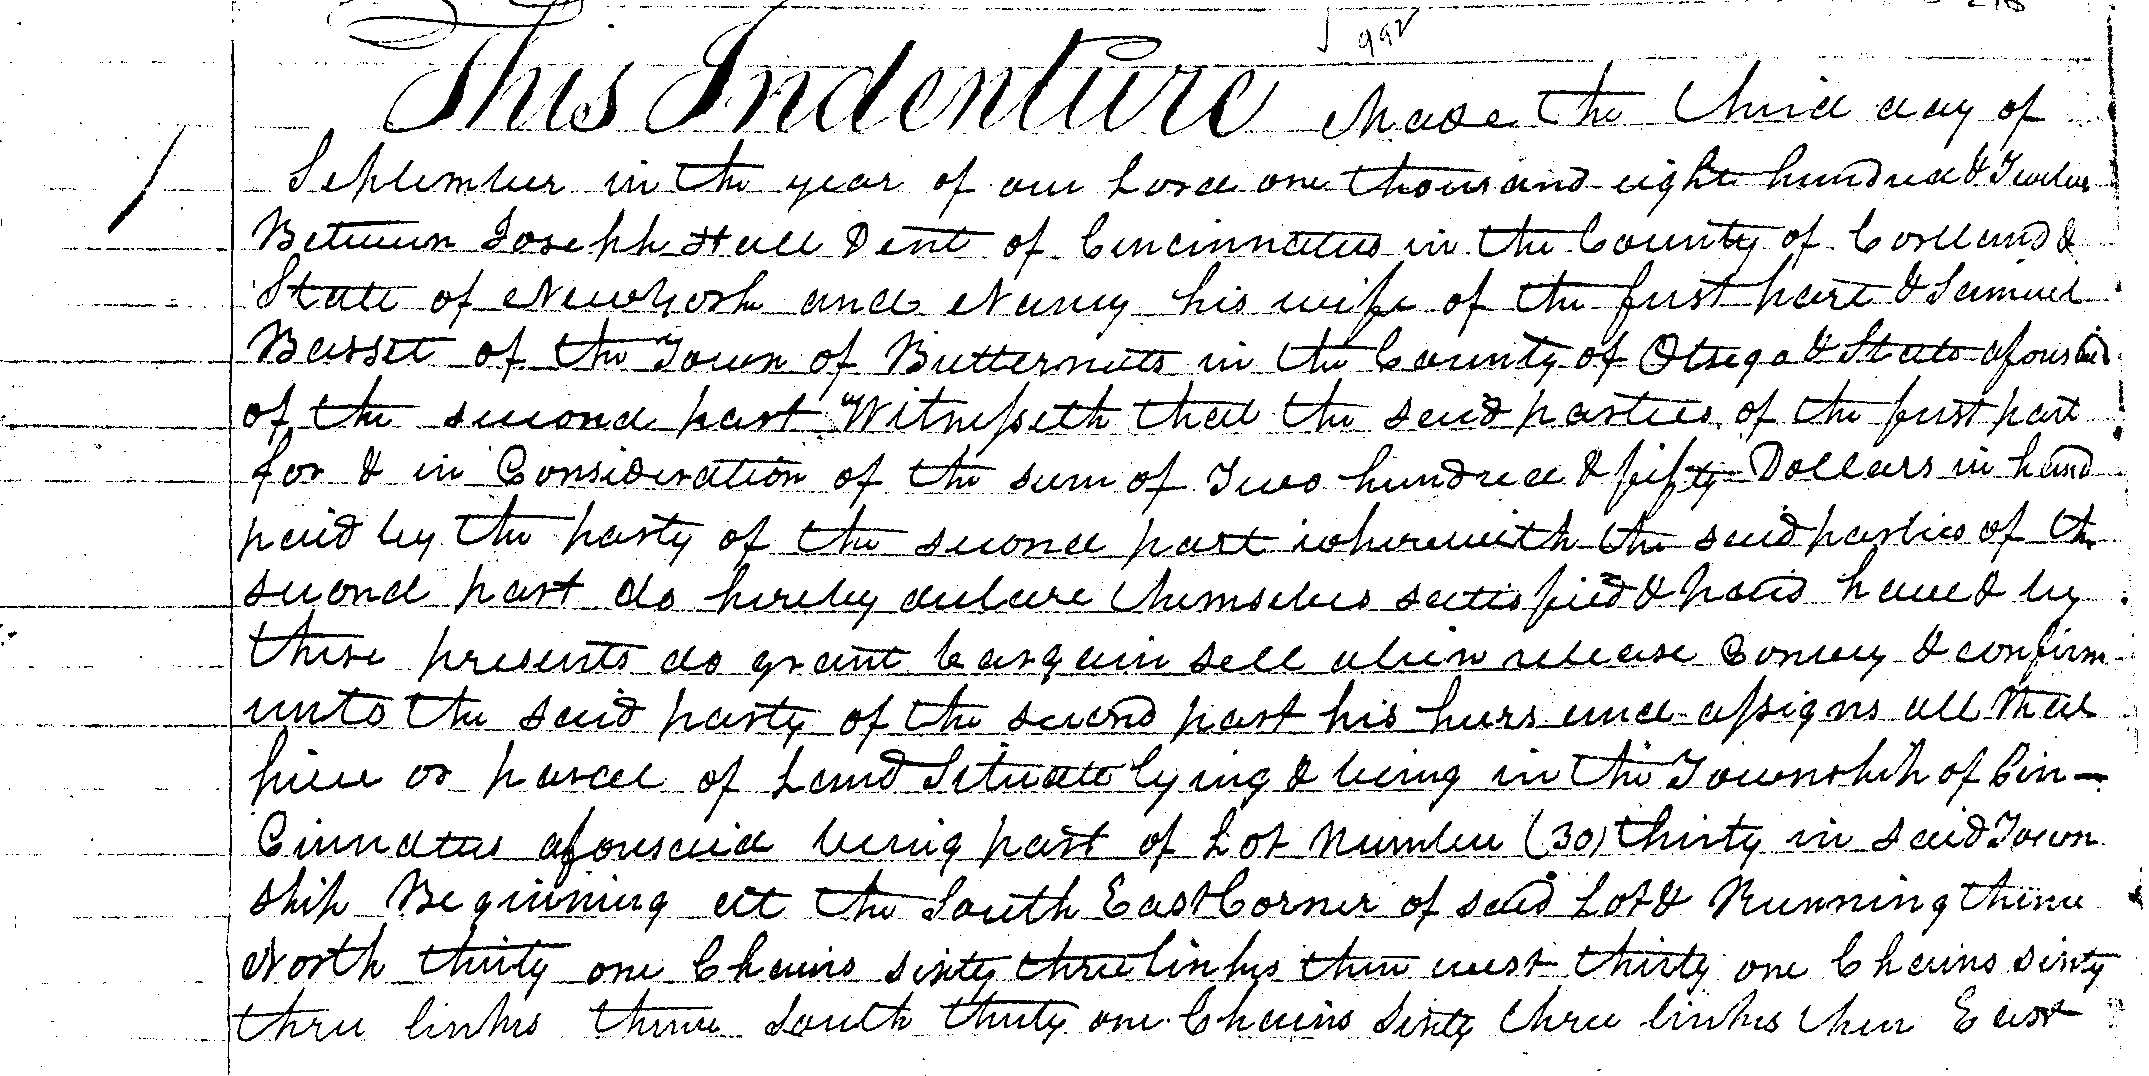 992
This Indenture Made the third day of
September in the year of our Lord one thousand eight hundred & Twelve
Between Joseph Hall Dent of Cincinnatus in the County of Cortland &
State of NewYork and Nancy his wife of the first part & Samuel
Basset of the Town of Butternuts in the County of Otsego & State aforesaid
of the second part Witnesseth that the said parties of the first part
for & in Consideration of the sum of Two hundred & fifty Dollars in hand
paid by the party of the second part wherewith the said parties of the
second part do hereby declare themselves satisfied & paid have & by
these presents do grant bargain sell alien release Convey & confirm
unto the said party of the second part his heirs and assigns all that
piece or parcel of Land Situate lying & being in the Township of Cin-
Cinnatus aforesaid being part of Lot Number (30) thirty in said Town
ship Beginning at the South East Corner of said Lot & Running thence
North thirty one Chains sixty three links then west thirty one Chains sixty
three links thence South thirty one Chains Sixty three links then East